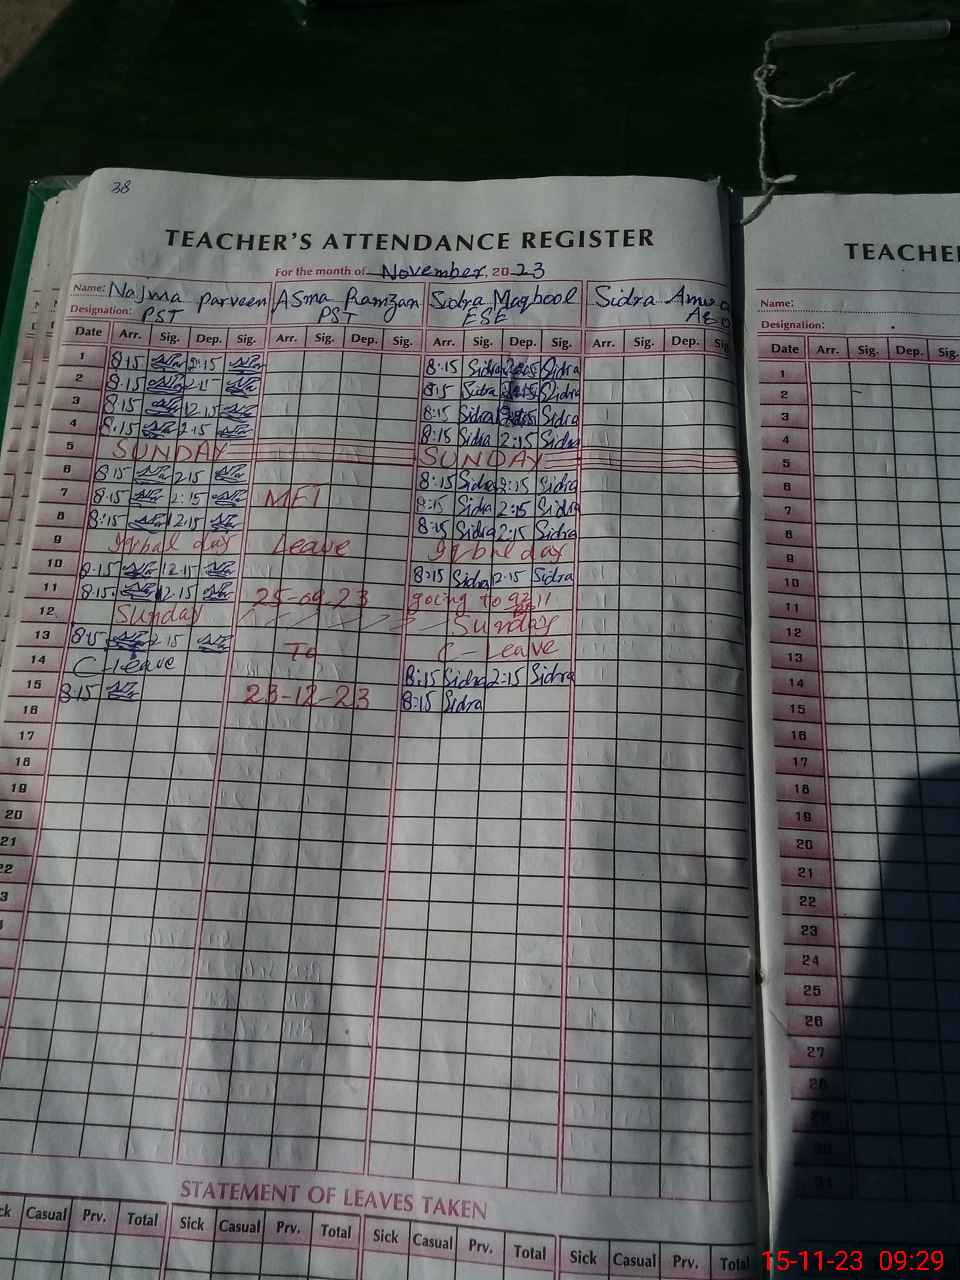 38
TEACHER'S ATTENDANCE REGISTER
For the month of November. 2023
Name: Najma Parveen ASma Ramzan Sidra Maqbool Sidra
Designation: PST PST ESE AEO
Date Arr. Sig. Dep. Sig. Arr. Sig. Dep. Sig. Arr. Sig. Dep. Sig. Arr. Sig. Dep. Sig.
1 8:15 2:15 8:15 Sidra Sidra
2 8:15 2:15 8:15 Sidra Sidra
3 8:15 2:15 8:15 Sidra Sidra
4 8:15 2:15 8:15 Sidra 2:15 Sidra
5 SUNDAY SUNDAY
6 8:15 2:15 8:15 Sidra 2:15 Sidra
7 8:15 2:15 8:15 Sidra 2:15 Sidra
8 8:15 2:15 8:15 Sidra 2:15 Sidra
9 day Leave day
10 8:15 2:15 8:15 Sidra 2:15 Sidra
11 8:15 2:15 25-09-23 going to
12 Sunday Sunday
13 8:15 2:15 To C-Leave
14 C-Leave 8:15 Sidra 2:15 Sidra
15 8:15 23-12-23 8:15 Sidra
16
17
18
19
20
21
22
3
STATEMENT OF LEAVES TAKEN
ck Casual Prv. Total Sick Casual Prv. Total Sick Casual Prv. Total Sick Casual Prv. Total
TEACHE
Name:
Designation:
Date Arr. Sig. Dep. Sig.
1
2
3
4
5
6
7
8
9
10
11
12
13
14
15
16
17
18
19
20
21
22
23
24
25
26
27
28
29
30
31
15-11-23 09:29